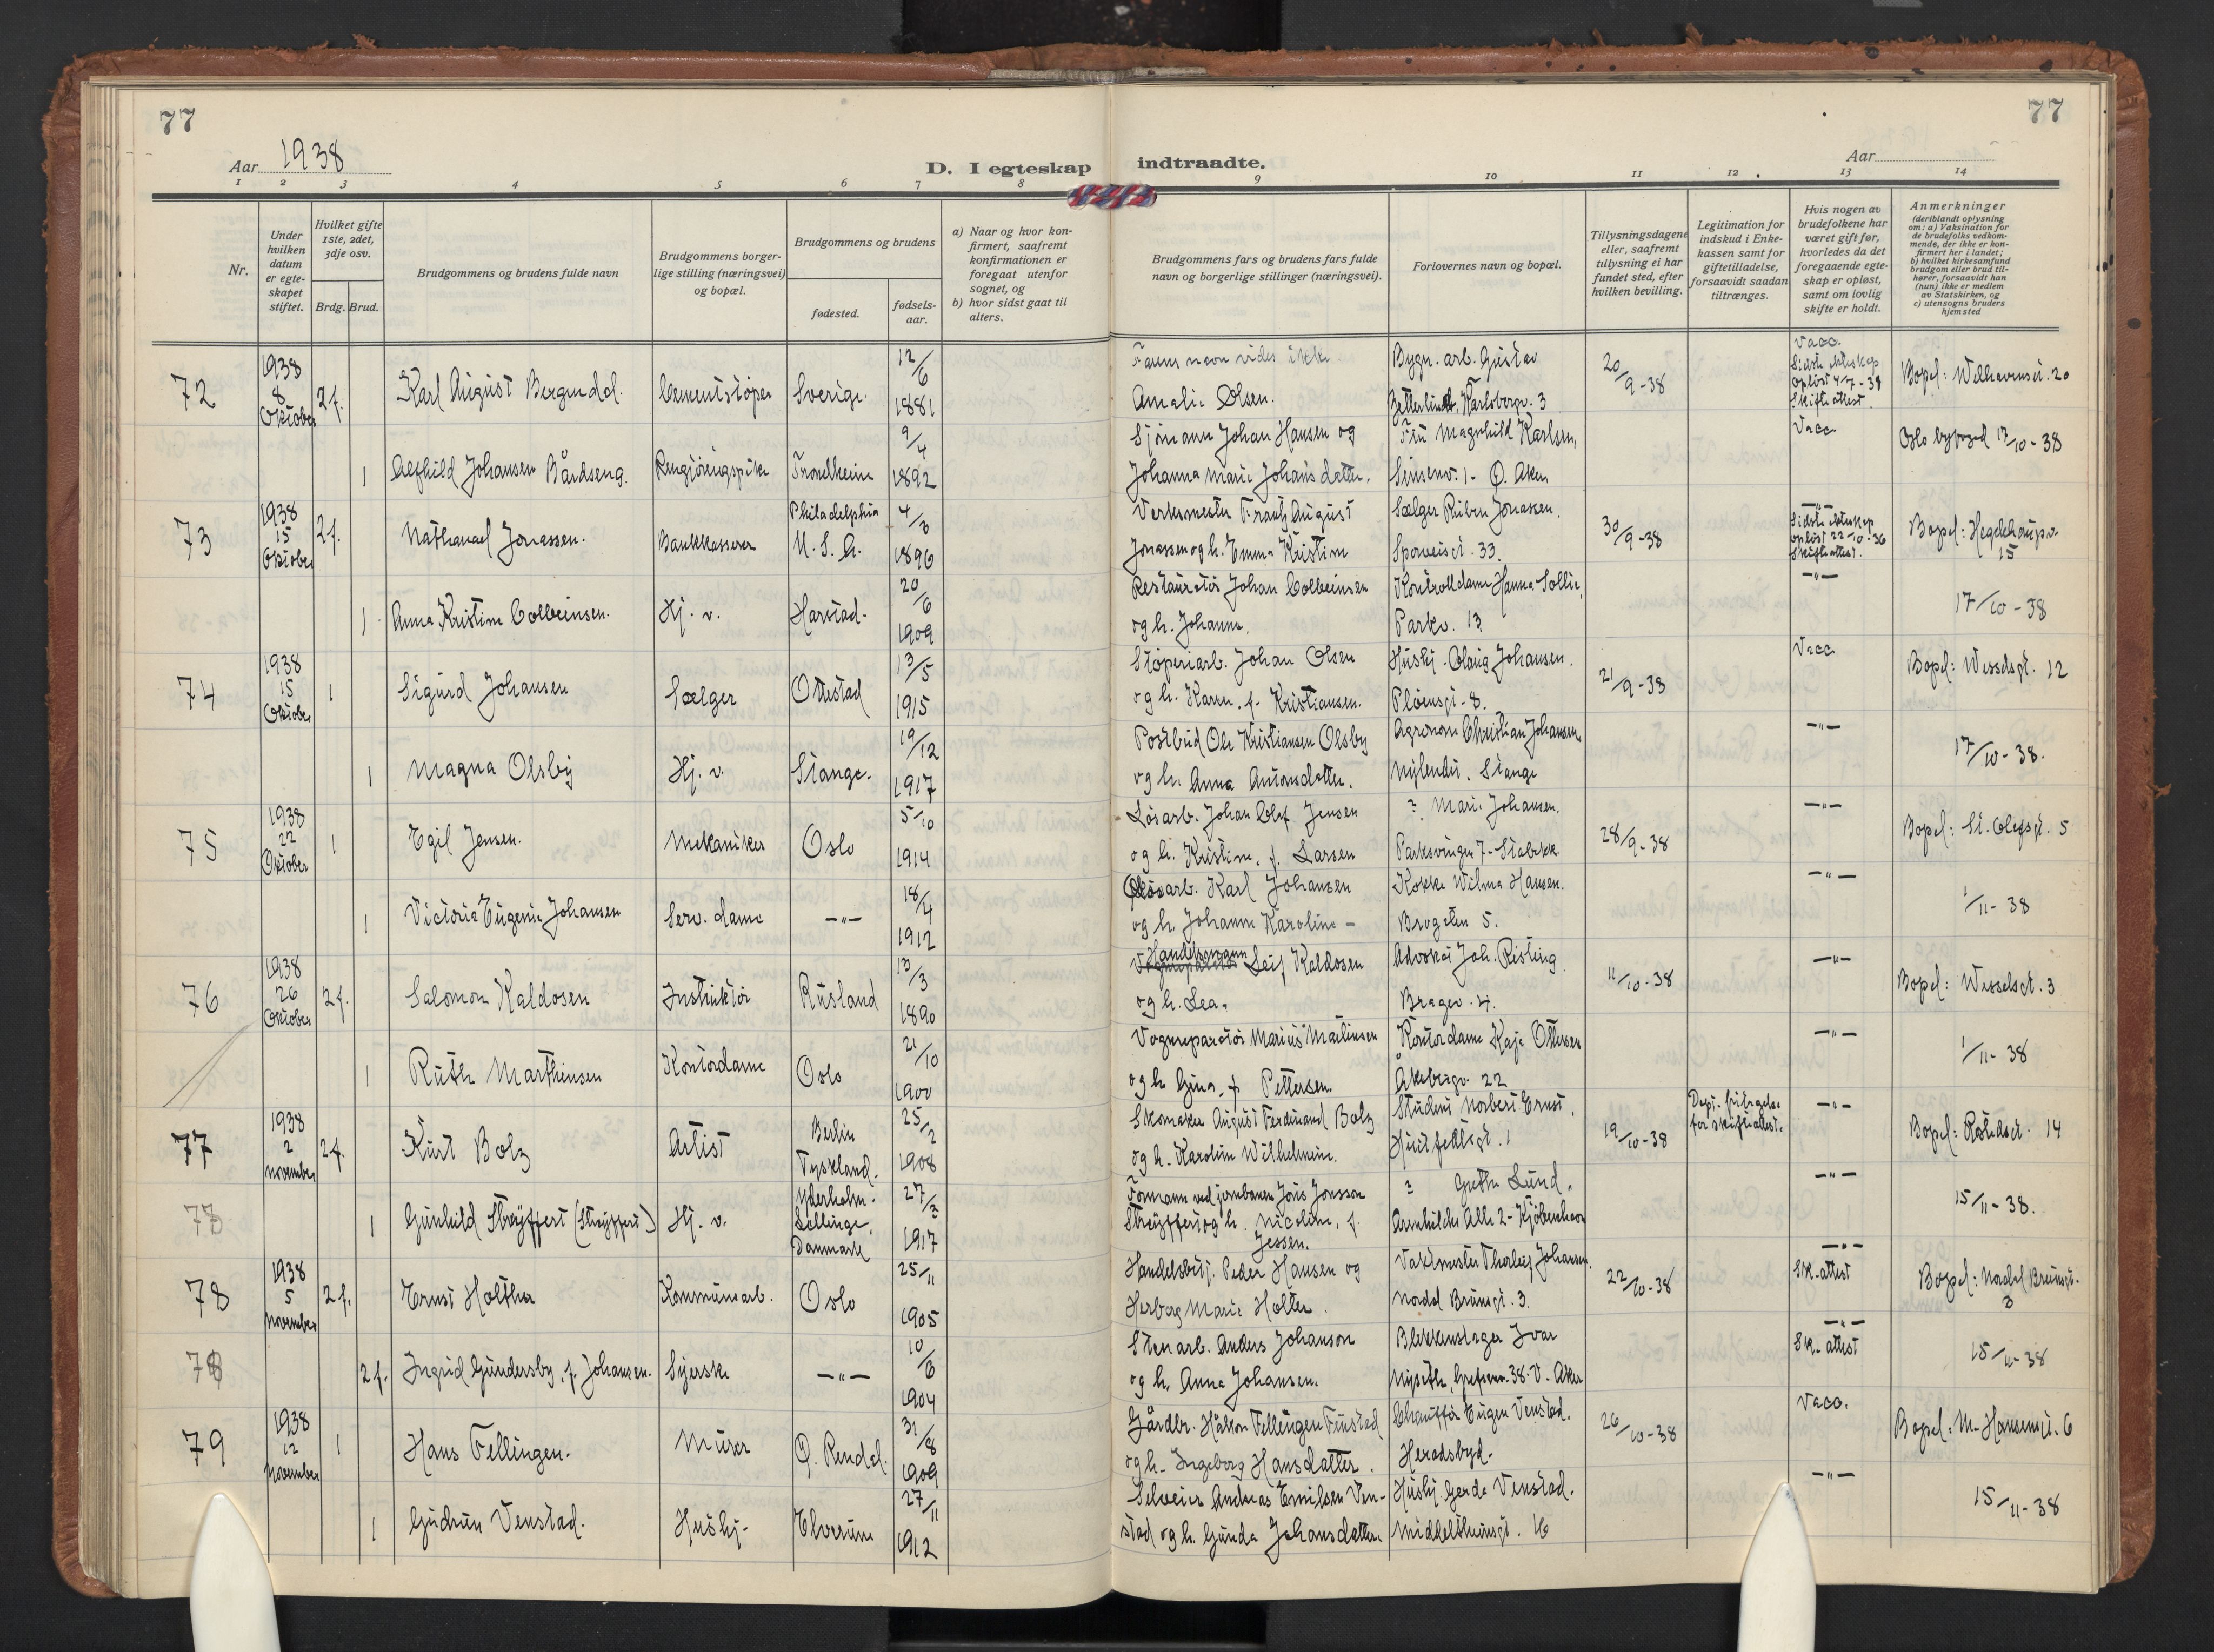 77
77
Aar 1938
D. I egteskap indtraadte.
Aar
1 2 3 4 5 6 7 8 9 10 11 12 13 14
Nr.
Under hvilken datum er egte- skapet stiftet.
Hvilket gifte 1ste, 2det, 3dje osv.
Brdg. Brud.
Brudgommens og brudens fulde navn
Brudgommens borger- lige stilling (næringsvei) og bopæl.
Brudgommens og brudens
fødested.
fødsels- aar.
a) Naar og hvor kon- firmert, saafremt konfirmationen er foregaat utenfor sognet, og
b) hvor sidst gaat til alters.
Brudgommens fars og brudens fars fulde navn og borgerlige stillinger (næringsvei).
Forlovernes navn og bopæl.
Tillysningsdagene eller, saafremt tillysning ei har fundet sted, efter hvilken bevilling.
Legitimation for indskud i Enke- kassen samt for giftetilladelse, forsaavidt saadan tiltrænges.
Hvis nogen av brudefolkene har været gift før, hvorledes da det foregaaende egte- skap er opløst, samt om lovlig skifte er holdt.
Anmerkninger
(deriblandt oplysning om: a) Vaksination for de brudefolks vedkom- mende, der ikke er kon- firmert her i landet; b) hvilket kirkesamfund brudgom eller brud til- hører, forsaavidt han (hun) ikke er medlem av Statskirken, og c) utensogns bruders hjemsted
72 1938 8 Oktober 2f. Karl August Bergendal. Cementstøper Sverige 12/6 1881
Farens navn vides ikke
Amalie Olsen.
Bygn. arb. Gustav
Karlsborgv. 3
20/9-38
Vacc.
Sidste ekteskap
opløst 4/7-38
Skifteattest.
Bopel: Welhavensgt. 20
1 Alfhild Johansen Bårdseng. Rengjøringspike Trondheim 9/4 1892
Sjømann Johan Hansen og
Johanna Marie Johansdatter.
Fru Magnhild Karlsen,
Sinsenv. 1 - Ø. Aker
Vacc
Oslo byfogd 17/10-38
73 1938 15 Oktober 2f. Nathanael Jonassen. Bankkasserer Philadelphia U.S.A. 4/3 1896
Verksmester Frantz August
Jonassen og h. Emma Kristine
Sælger Ruben Jonassen.
Sporveisgt. 33.
30/9-38
-"-
Sidste ekteskap
opløst 22-10-36
Skifteattest.
Bopel: Hegdehaugsv. 15
1 Anna Kristine Colbeinsen. Hj. v. Harstad. 20/6 1909
Restauratør Johan Colbeinsen
og h. Johanne.
Kontrolldame Hanna Sollie,
Parkv. 13
-"-
17/10-38
74 1938 15 Oktober 1 Sigurd Johansen Sælger Ottestad 13/5 1915
Støperiarb. Johan Olsen
og h. Karen, f. Kristiansen.
Hushj. Olaug Johansen.
Pløensgt. 8.
21/9-38
Vacc
Bopel: Wesselsgt. 12
1 Magna Olsby Hj. v. Stange. 19/12 1917
Postbud Ole Kristiansen Olsby
og h. Anna Antonsdatter.
Agronom Christian Johansen,
Stange
-"-
17/10-38.
75 1938 22 Oktober 1 Egil Jensen. Mekaniker Oslo 5/10 1914
Løsarb. Johan Olaf Jensen
og h. Kristine, f. Larsen
? Marie Johansen.
Parksvingen 7 - Stabekk
28/9-38
-"-
Bopel: St. Olafsgt. 5
1 Victoria Eugenie Johansen Serv. dame -"- 18/4 1912
Løsarb. Karl Johansen
og h. Johanne Karoline -
Kokke Wilma Hansen.
Brogaten 5.
-"-
1/11-38
76 1938 26 Oktober 2f. Salomon Kaldosen Instruktør Rusland 13/3 1890
Handelsmann
Leif Kaldosen
og h. Lea.
Advokat Joh. Risting
Bragev. 4.
11/10-38
-"-
Bopel: Wesselsgt. 3
1 Ruth Marthinsen Kontordame Oslo 21/10 1900
Vognreparatør Marius Martinsen
og h. Gina, f. Pettersen.
Kontordame Kaja Ottesen
Åkebergv. 22
-"-
1/11-38
77 1938 2 November 2f. Kurt Bolz Artist Berlin Tyskland. 25/2 1908
Skomaker August Ferdinand Bolz
og h. Karoline Wilhelmine.
Student Norbert Ernst.
Huitfeldtsgt. 1
19/10-38
Dept. fritagelse
for skifteattest.
-"-
Bopel: Rostedsgt. 14
77 1 Gunhild Streyffert (Streyffert) Hj. v. Danmark 27/3 1917
Formann ved jernbanen Jöns Jönsson
Streyffert og h. Nicoline, f.
Jessen.
? Grethe Lund,
Allé 2 - Kjøbenhavn
-"-
15/11-38.
78 1938 5 November 2f. Ernst Holther Kommunearb. Oslo 25/11 1905
Handelsbetj. Peder Hansen og
Herborg Marie Holter.
Vaktmester Thorleif Johansen.
Nordal Brunsgt. 3.
22/10-38
-"-
Sk. attest
Bopel: Nordal Brunsgt. 3
78 2f. Ingrid Gundersby, f. Johansen. Syerske -"- 10/6 1904
Stenarb. Anders Johanson
og h. Anna Johansen.
Blikkenslager Ivar
Nyseth, Grefsenv. 38. V. Aker
-"-
Sk. attest
15/11-38
79 1938 12 November 1 Hans Fellingen. Murer Ø. Rendal. 31/8 1909
Gårdbr. Håkon Fellingen
og h. Ingeborg Hansdatter.
Chauffør Eugen Venstad.
Heradsbygd.
26/10-38
Vacc.
Bopel: M. Hansensgt. 6
1 Gudrun Venstad. Hushj. Elverum 27/11 1912
Selveier Andreas Emilsen Ven-
stad og h. Gunda Johansdatter
Hushj. Gerda Venstad.
Middelthunsgt. 16
-"-
15/11-38